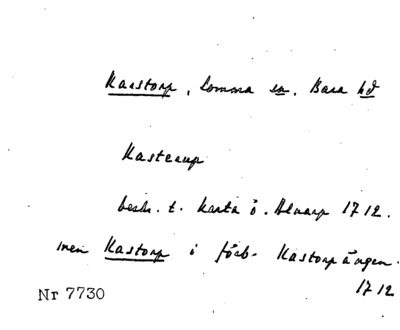 Karstorp, Lomma sn, Bara hd
Kasterup
beskr. t. karta ö. Alnarp 1712.
men Kastorp i förb. Kastorpängen.
1712
Nr 7730